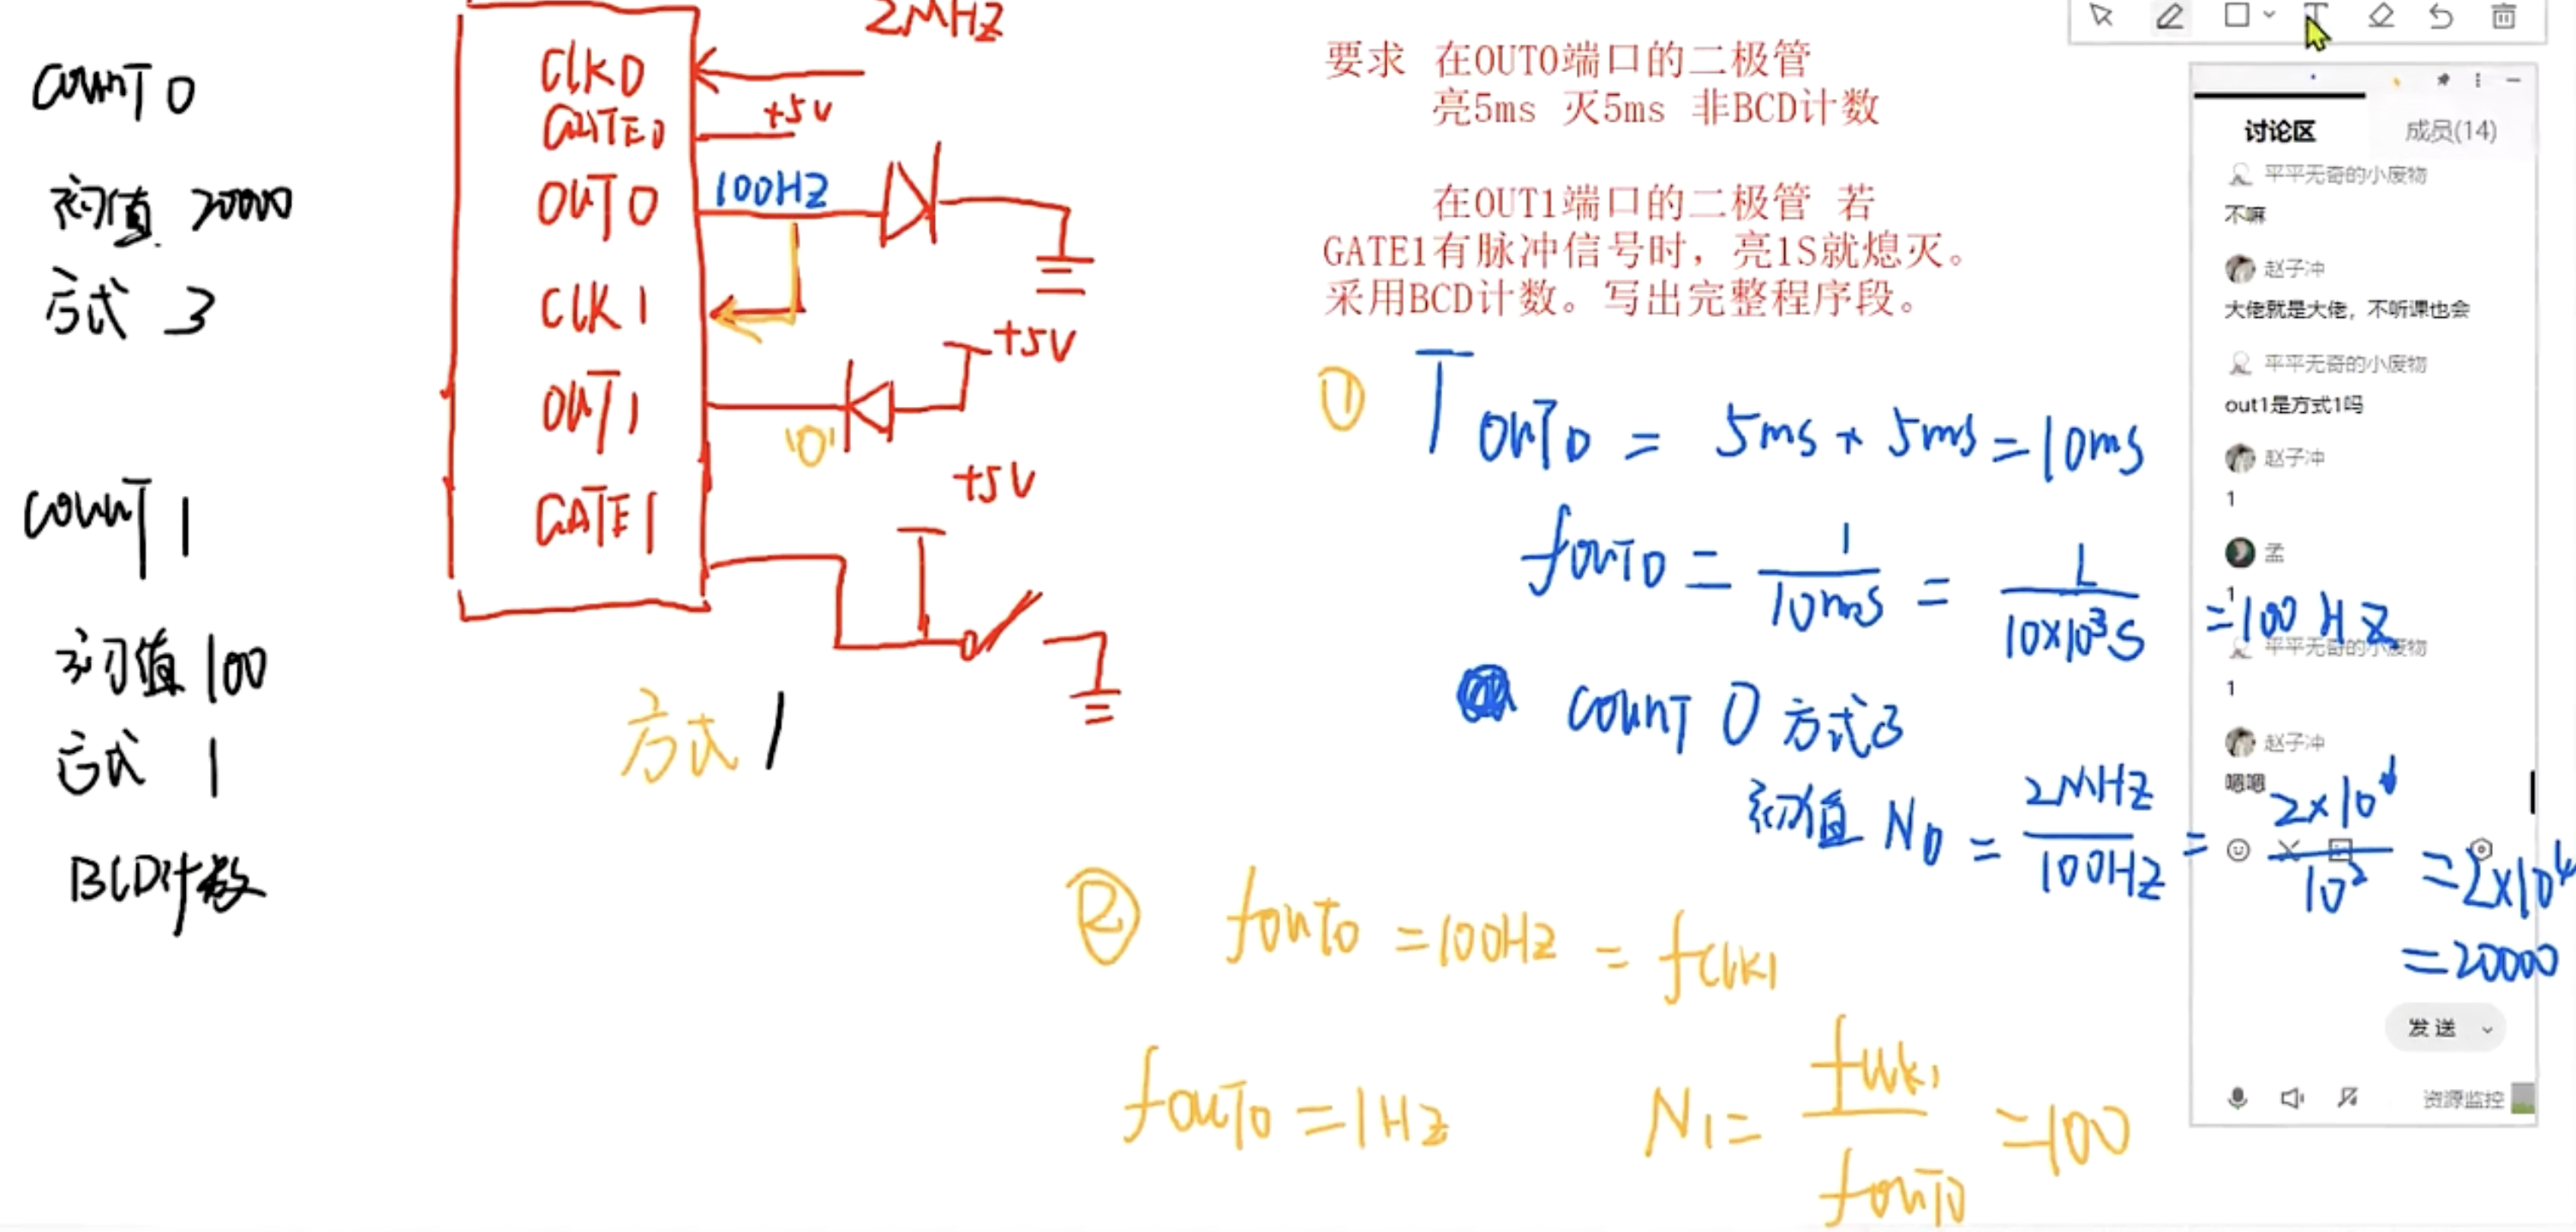 COUNT 0
初值 20000
方式 3
COUNT 1
初值 100
方式 1
BCD计数
2MHZ
CLK0
GATE0
+5V
OUT0
100HZ
CLK1
+5V
OUT1
'0'
+5V
GATE1
方式 1
要求 在OUT0端口的二极管
亮5ms 灭5ms 非BCD计数
在OUT1端口的二极管 若
GATE1有脉冲信号时，亮1S就熄灭。
采用BCD计数。写出完整程序段。
① TOUT0 = 5ms + 5ms = 10ms
fOUT0 = 1/10ms = 1/10×10³S = 100HZ
COUNT 0 方式3
初值 N0 = 2MHZ/100HZ = 2×10⁶/10² = 2×10⁴
= 20000
② fOUT0 = 100HZ = fCLK1
fOUT0 = 1HZ N1 = fCLK1/fOUT0 = 100
讨论区 成员(14)
平平无奇的小废物
不嘛
赵子冲
大佬就是大佬，不听课也会
平平无奇的小废物
out1是方式1吗
赵子冲
1
孟
1
平平无奇的小废物
1
赵子冲
嗯嗯
发送
资源监控